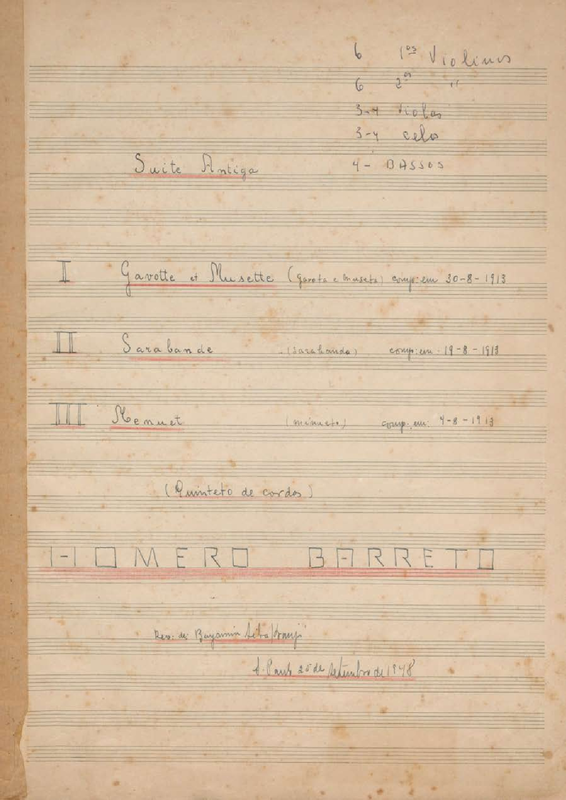 6 1os Violinos
6 2os "
3-4 Violas
3-4 celo
Suite Antiga 4- BASSOS
I Gavotte et Musette (gavota e museta) comp. em 30-8-1913
II Sarabande (sarabanda) comp. em 19-8-1913
III Menuet (minueto) comp. em 4-8-1913
(Quinteto de cordas)
HOMERO BARRETO
Benjamin
S. Paulo 25 de setembro de 1948